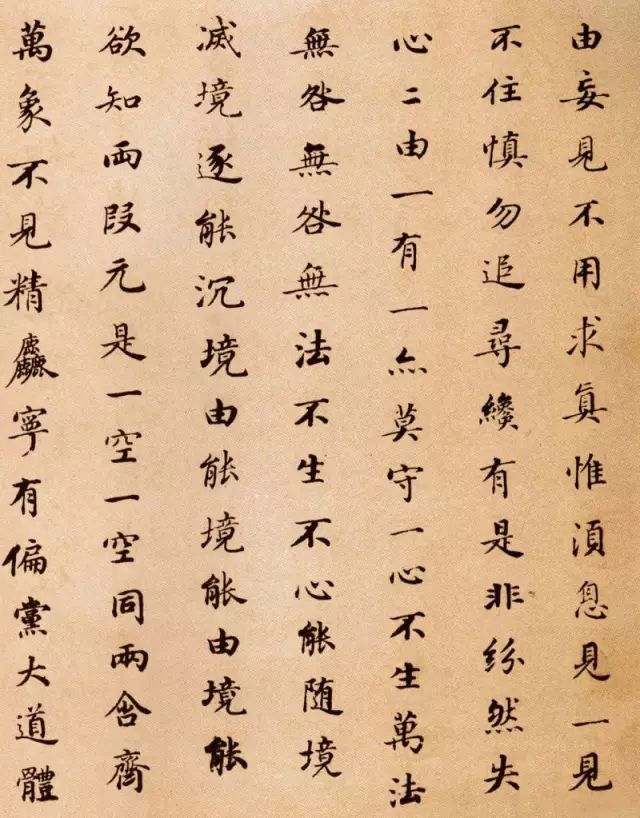 由妄見不用求眞惟湏息見一見
不住慎勿追尋纔有是非紛然失
心二由一有一亦莫守一心不生萬法
無咎無咎無法不生不心能随境
滅境逐能沉境由能境能由境能
欲知両段元是一空一空同兩含齊
萬象不見精麤寧有偏黨大道體